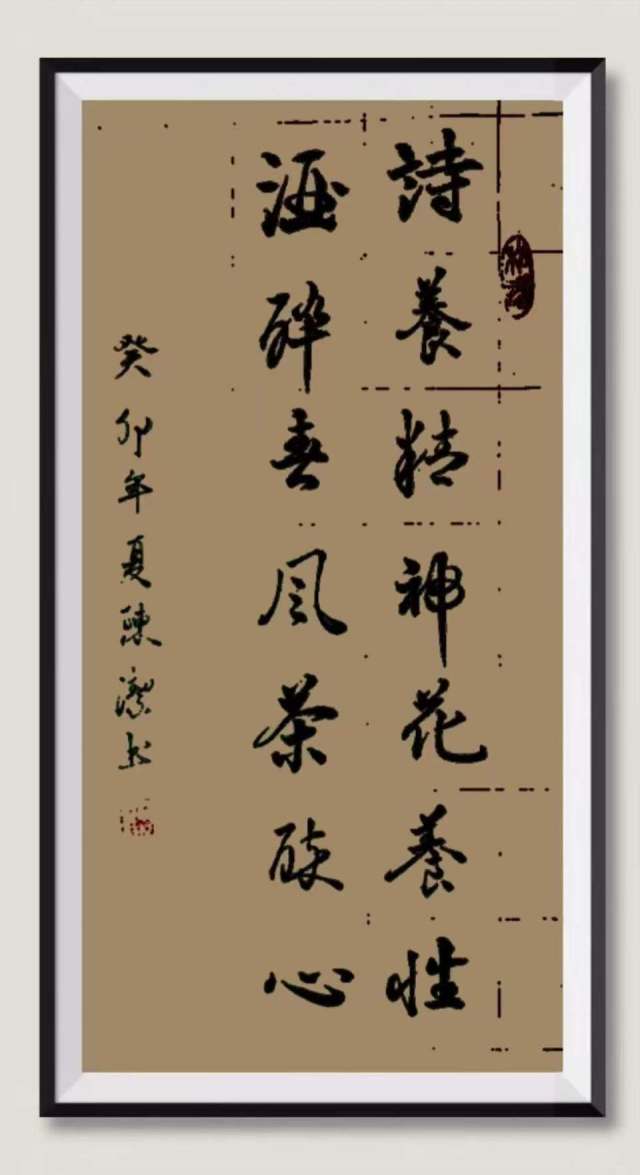 詩養精神花養性
酒醉春风茶醉心
癸卯年夏陳潔书